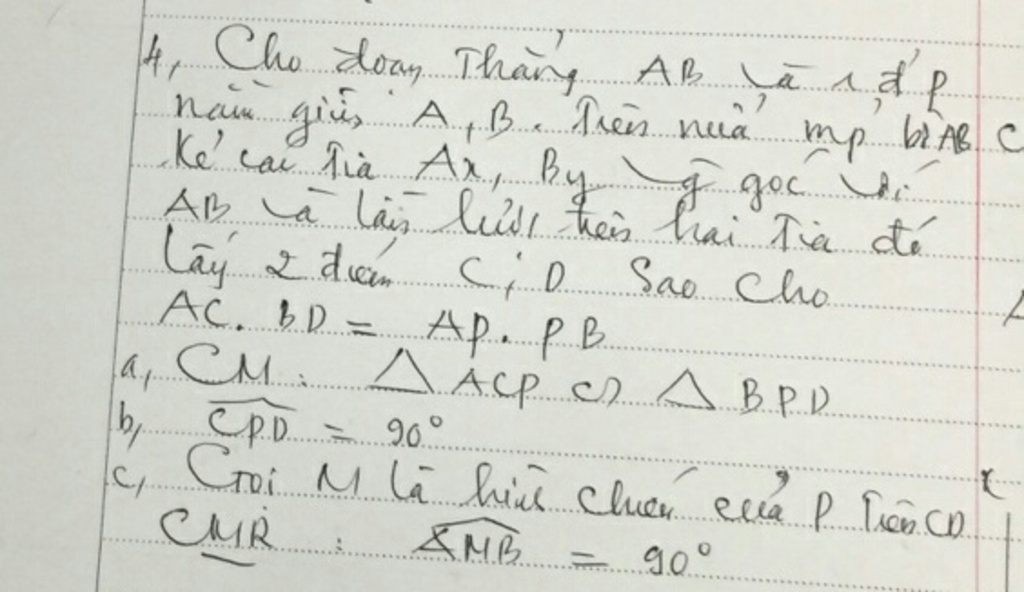 4, Cho đoạn Thẳng AB và 1 đ' P
nằm giữa A, B. Trên nửa mp bờ AB C
Kẻ các Tia Ax, By vg góc với
AB và lần lượt trên hai Tia đó
Lấy 2 điểm C; D Sao Cho
AC. BD = AP. PB
a, CM: △ ACP ∽ △ BPD
b, \widehat{CPD} = 90°
c, Gọi M là hình chiếu của P Trên CD
CMR: \widehat{AMB} = 90°